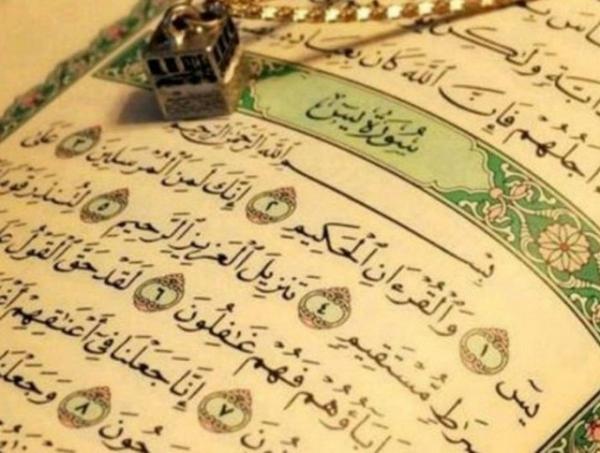 وَلَٰكِن
أَجَلُهُمْ فَإِنَّ ٱللَّهَ كَانَ
سُورَةُ يسٓ
بِسْمِ ٱللَّهِ ٱلرَّحْمَٰنِ ٱلرَّحِيمِ
يسٓ ١ وَٱلْقُرْءَانِ ٱلْحَكِيمِ ٢ إِنَّكَ لَمِنَ ٱلْمُرْسَلِينَ ٣ عَلَىٰ
صِرَٰطٍ مُّسْتَقِيمٍ ٤ تَنزِيلَ ٱلْعَزِيزِ ٱلرَّحِيمِ ٥ لِتُنذِرَ قَوْمًا
ءَابَآؤُهُمْ فَهُمْ غَٰفِلُونَ ٦ لَقَدْ حَقَّ ٱلْقَوْلُ
٧ إِنَّا جَعَلْنَا فِىٓ أَعْنَٰقِهِمْ
٨ وَجَعَلْنَا